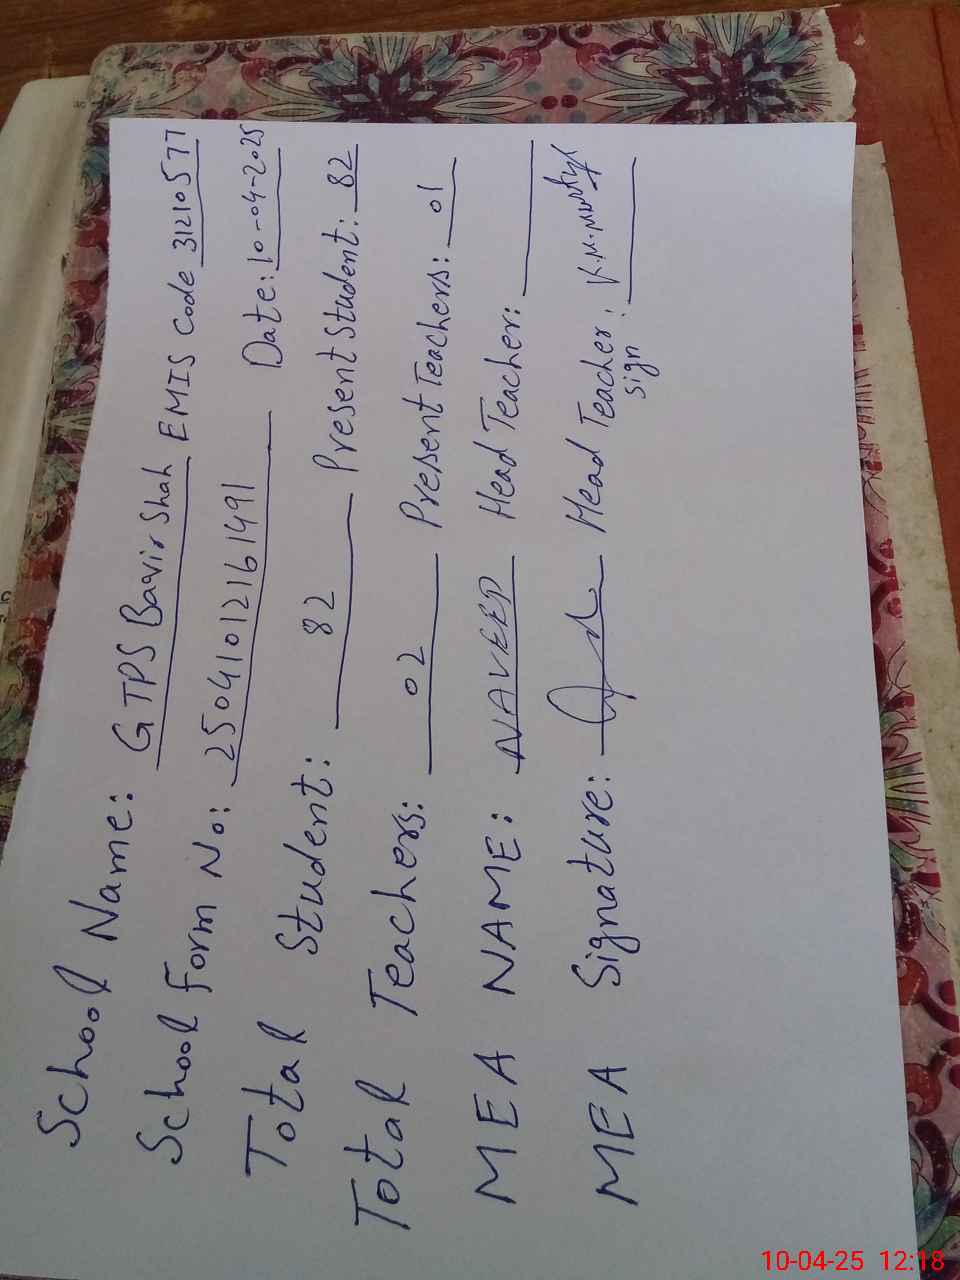 School Name: GTPS Bavir Shah EMIS Code 31210577
School Form No: 25041012161491 Date: 10-04-2025
Total Student: 82 Present Student: 82
Total Teachers: 02 Present Teachers: 01
MEA NAME: NAVEED Head Teacher:
MEA Signature: Head Teacher:
sign
10-04-25 12:18